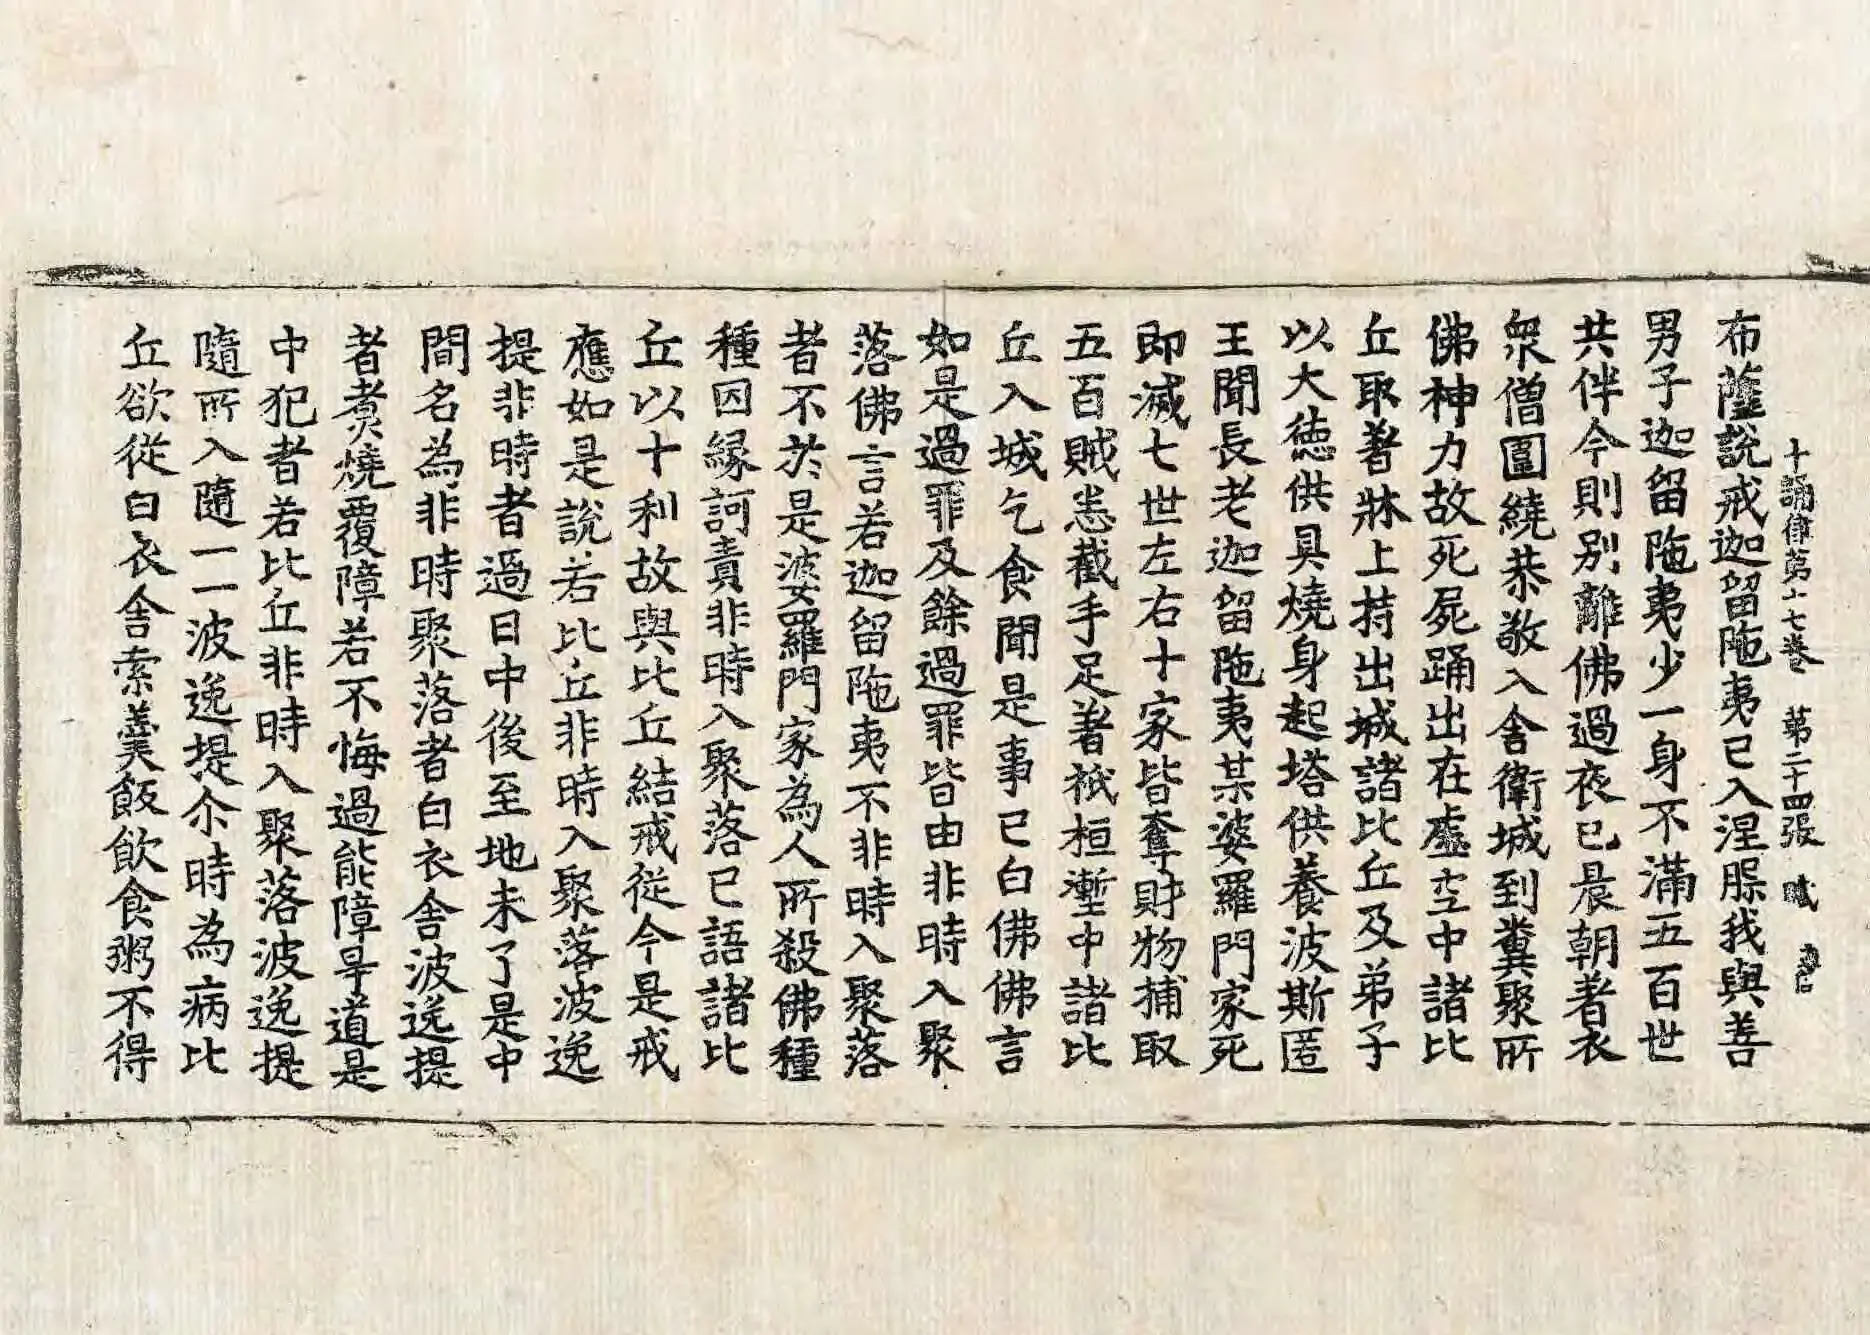 十誦律第十七卷 第二十四張 貳
布薩說戒迦留陁夷已入涅槃我與善
男子迦留陁夷少一身不滿五百世
共伴今則别離佛過夜已晨朝著衣
衆僧圍繞恭敬入舍衛城到糞聚所
佛神力故死屍踊出在虛空中諸比
丘取著牀上持出城諸比丘及弟子
以大德供具燒身起塔供養波斯匿
王聞長老迦留陁夷某婆羅門家死
即滅七世左右十家皆奪財物捕取
五百賊悉截手足著祇桓塹中諸比
丘入城乞食聞是事已白佛佛言
如是過罪及餘過罪皆由非時入聚
落佛言若迦留陁夷不非時入聚落
者不於是婆羅門家為人所殺佛種
種因緣訶責非時入聚落已語諸比
丘以十利故與比丘結戒從今是戒
應如是說若比丘非時入聚落波逸
提非時者過日中後至地未了是中
間名為非時聚落者白衣舍波逸提
者煑燒覆障若不悔過能障㝵道是
中犯者若比丘非時入聚落波逸提
隨所入隨一一波逸提尒時為病比
丘欲從白衣舍索羹飯飲食粥不得